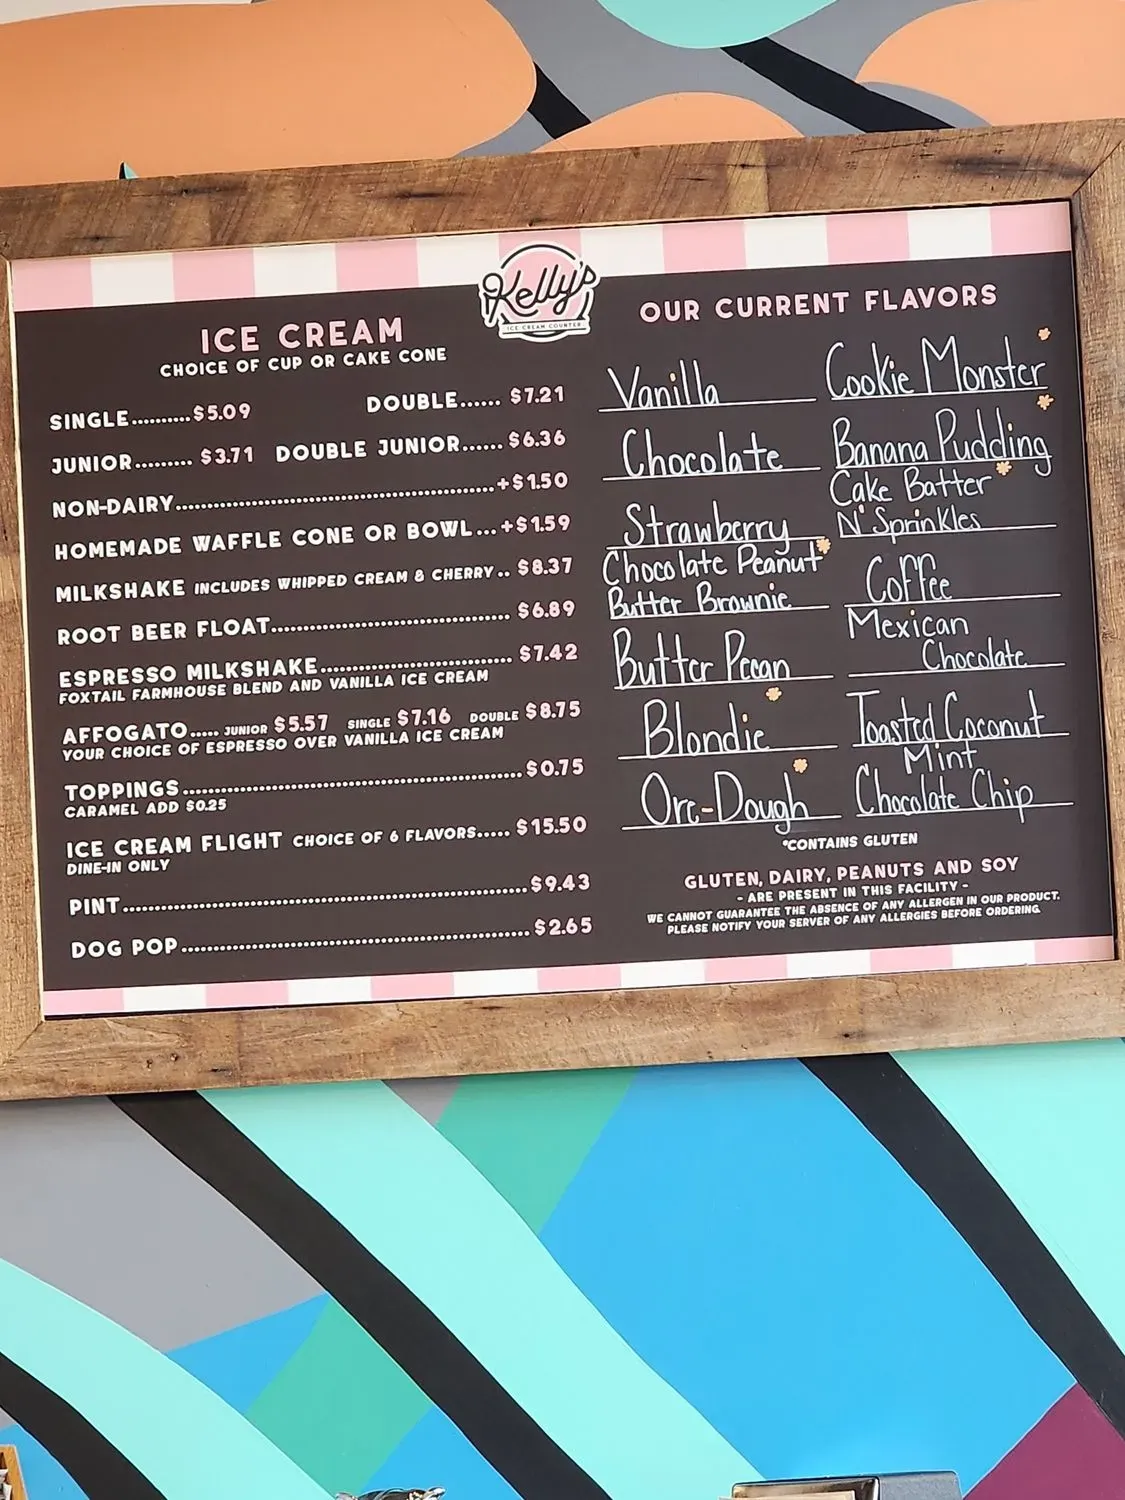 Kelly's
ICE CREAM COUNTER
ICE CREAM
CHOICE OF CUP OR CAKE CONE
SINGLE..........$5.09 DOUBLE...... $7.21
JUNIOR......... $3.71 DOUBLE JUNIOR...... $6.36
NON-DAIRY..........+$1.50
HOMEMADE WAFFLE CONE OR BOWL...+$1.59
MILKSHAKE INCLUDES WHIPPED CREAM & CHERRY.. $8.37
ROOT BEER FLOAT.......... $6.89
ESPRESSO MILKSHAKE.......... $7.42
FOXTAIL FARMHOUSE BLEND AND VANILLA ICE CREAM
AFFOGATO..... JUNIOR $5.57 SINGLE $7.16 DOUBLE $8.75
YOUR CHOICE OF ESPRESSO OVER VANILLA ICE CREAM
TOPPINGS..........$0.75
CARAMEL ADD $0.25
ICE CREAM FLIGHT CHOICE OF 6 FLAVORS..... $15.50
DINE-IN ONLY
PINT..........$9.43
DOG POP..........$2.65
OUR CURRENT FLAVORS
Vanilla
Chocolate
Strawberry
Chocolate Peanut*
Butter Brownie
Butter Pecan
Blondie*
Ore-Dough*
Cookie Monster*
Banana Pudding*
Cake Batter*
N' Sprinkles
Coffee
Mexican
Chocolate
Toasted Coconut
Mint
Chocolate Chip
*CONTAINS GLUTEN
GLUTEN, DAIRY, PEANUTS AND SOY
- ARE PRESENT IN THIS FACILITY -
WE CANNOT GUARANTEE THE ABSENCE OF ANY ALLERGEN IN OUR PRODUCT.
PLEASE NOTIFY YOUR SERVER OF ANY ALLERGIES BEFORE ORDERING.